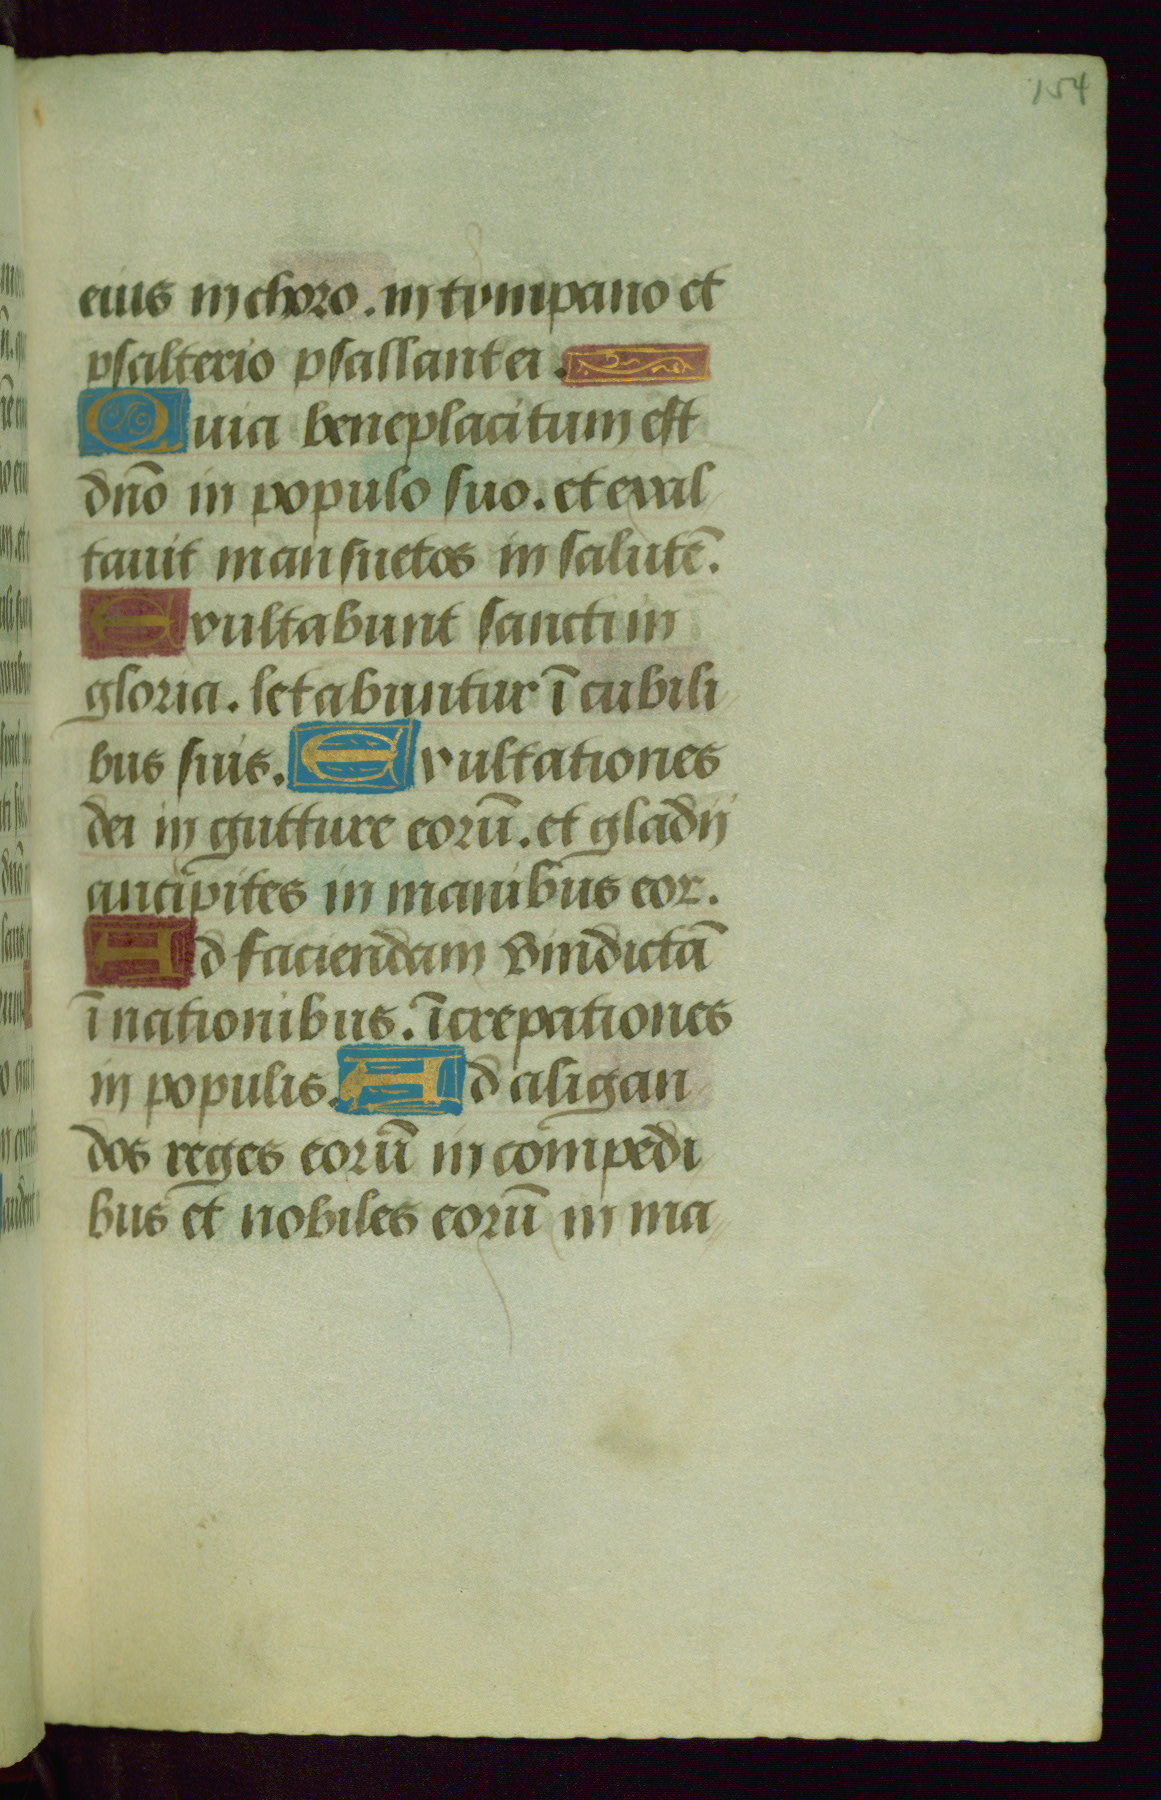 154
eius in choro. in tympano et
psalterio psallant ei.
Quia beneplacitum est
dn̄o in populo suo. et exal
tauit mansuetos in salutē.
Exultabunt sancti in
gloria. letabuntur ī cubili
bus suis. Exultationes
dei in gutture eorū. et gladii
ancipites in manibus eor.
Ad faciendam vindictā
ī nationibus. īcrepationes
in populis. Ad aligan
dos reges eorū in compedi
bus et nobiles eorū in ma